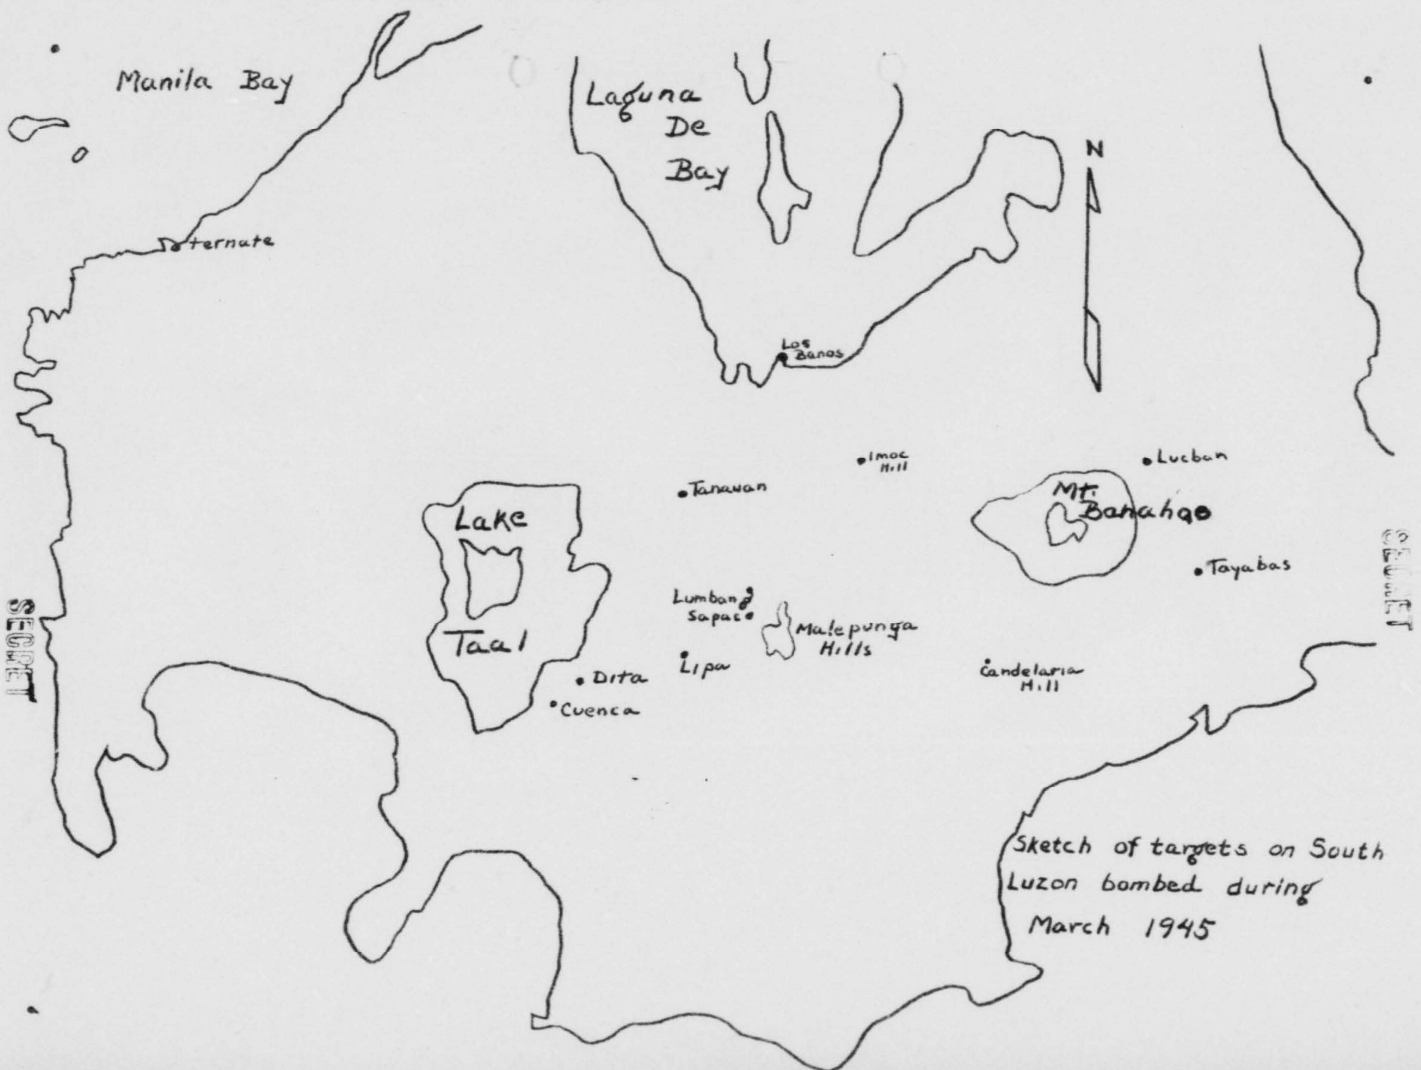 Manila Bay
Laguna
De
Bay
N
ternate
Los
Banos
Imoc
Hill
Lucban
Tanauan
Mt.
Banahao
Lake
Taal
Tayabas
Lumbang
Sapac
Malepunga
Hills
Lipa
Dita
Cuenca
Candelaria
Hill
SECRET
SECRET
Sketch of targets on South
Luzon bombed during
March 1945